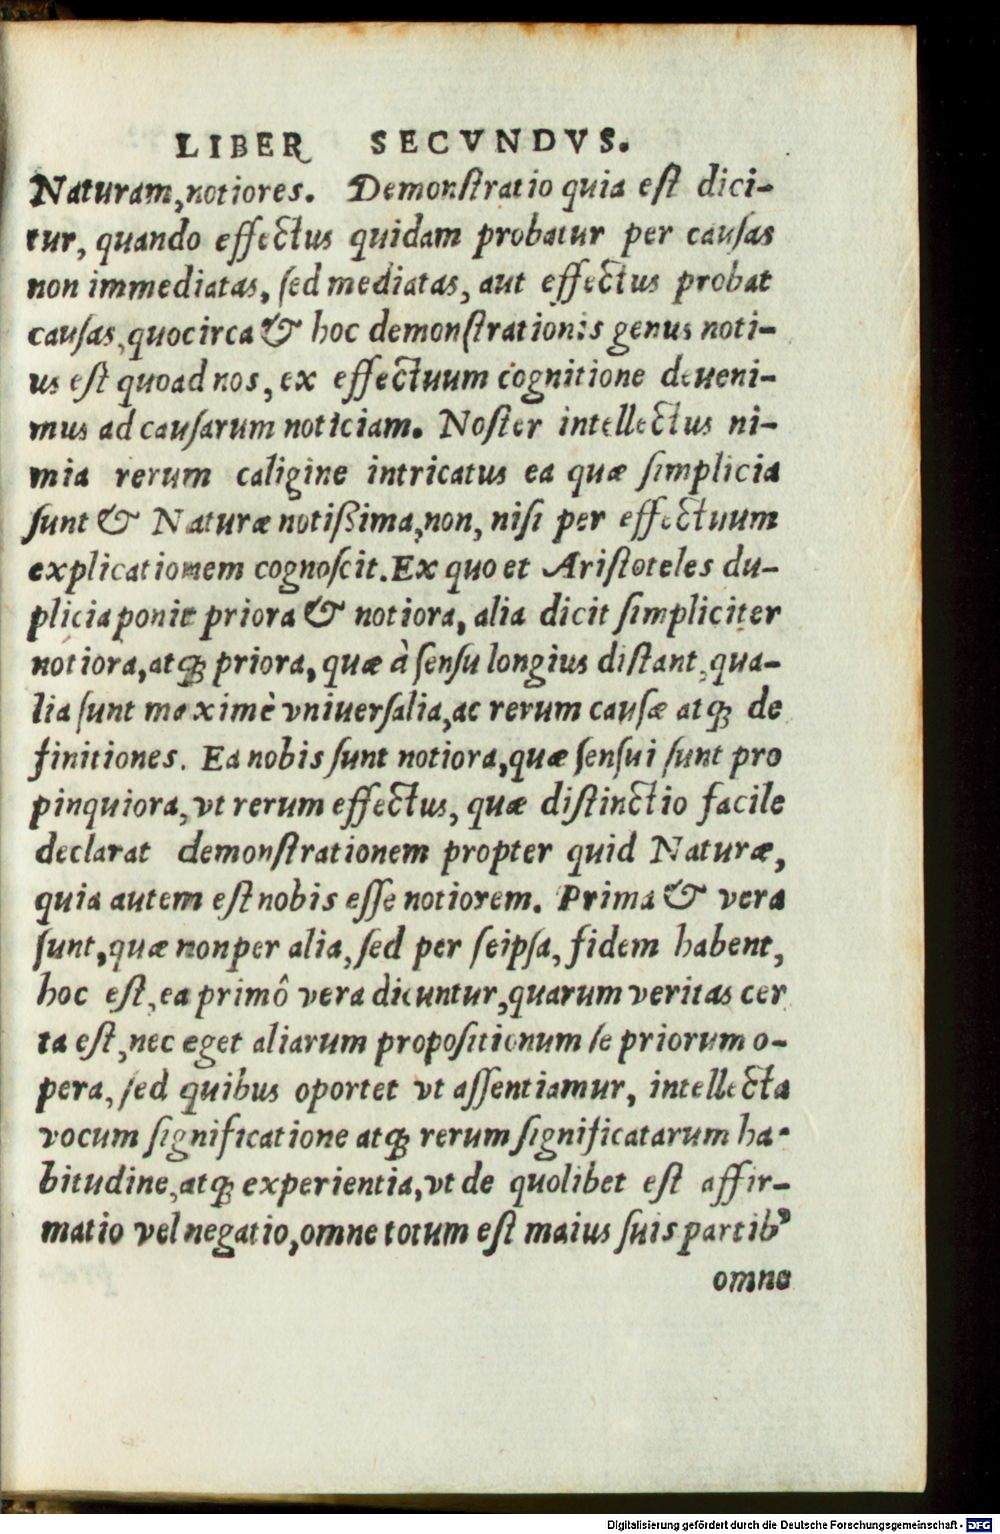 LIBER SECVNDVS.
Naturam,notiores. Demonſtratio quia eſt dici-
tur, quando effectus quidam probatur per cauſas
non immediatas, ſed mediatas, aut effectus probat
cauſas,quocirca & hoc demonſtrationis genus noti-
us eſt quoad nos, ex effectuum cognitione deueni-
mus ad cauſarum noticiam. Noſter intellectus ni-
mia rerum caligine intricatus ea quæ ſimplicia
ſunt & Naturæ notißima,non, niſi per effectuum
explicationem cognoſcit.Ex quo et Ariſtoteles du-
plicia ponit priora & notiora, alia dicit ſimpliciter
notiora,atq́; priora, quæ à ſenſu longius diſtant,qua-
lia ſunt maximè vniuerſalia,ac rerum cauſæ atq́; de
finitiones. Ea nobis ſunt notiora,quæ ſenſui ſunt pro
pinquiora, vt rerum effectus, quæ diſtinctio facile
declarat demonſtrationem propter quid Naturæ,
quia autem eſt nobis eſſe notiorem. Prima & vera
ſunt,quæ nonper alia, ſed per ſeipſa, fidem habent,
hoc eſt,ea primô vera dicuntur,quarum veritas cer
ta eſt,nec eget aliarum propoſitionum ſe priorum o-
pera, ſed quibus oportet vt aſſentiamur, intellecta
vocum ſignificatione atq́; rerum ſignificatarum ha-
bitudine,atq́; experientia,vt de quolibet eſt affir-
matio vel negatio,omne totum eſt maius ſuis partibꝰ
omne
Digitalisierung gefördert durch die Deutsche Forschungsgemeinschaft - DFG